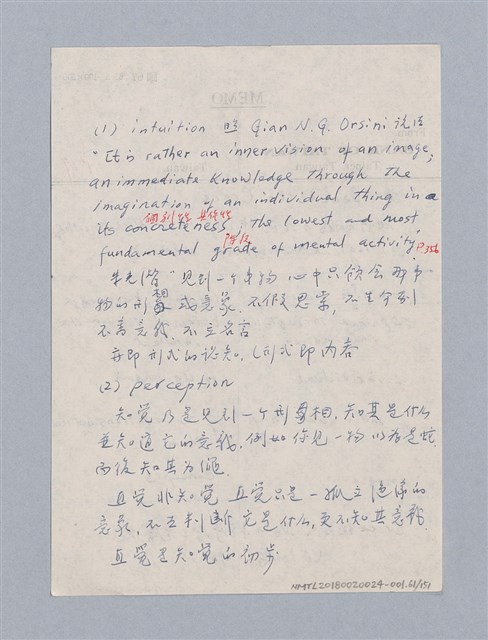 MEMO
(1) intuition 照 Gian N.G. Orsini 说法
"It is rather an inner vision of an image,
an immediate knowledge through the
imagination of an individual thing in
個別性 具体性
its concreteness, the lowest and most
階段
fundamental grade of mental activity" P356
朱光潜 "见到一个事物 心中只领会那事
物的形相或意象, 不假思索, 不生分别
不审意義 不立名言
亦即形式的認知, 形式即内容
(2) perception
知觉乃是见到一个形象相, 知其是什么
並知道它的意義, 例如你见一物以为是蛇
而後知其为绳.
直觉非知觉 直觉只是一孤立绝缘的
意象, 不去判断它是什么, 更不知其意義
直覺是知覺的初步
NMTL20180020024-001.61/151